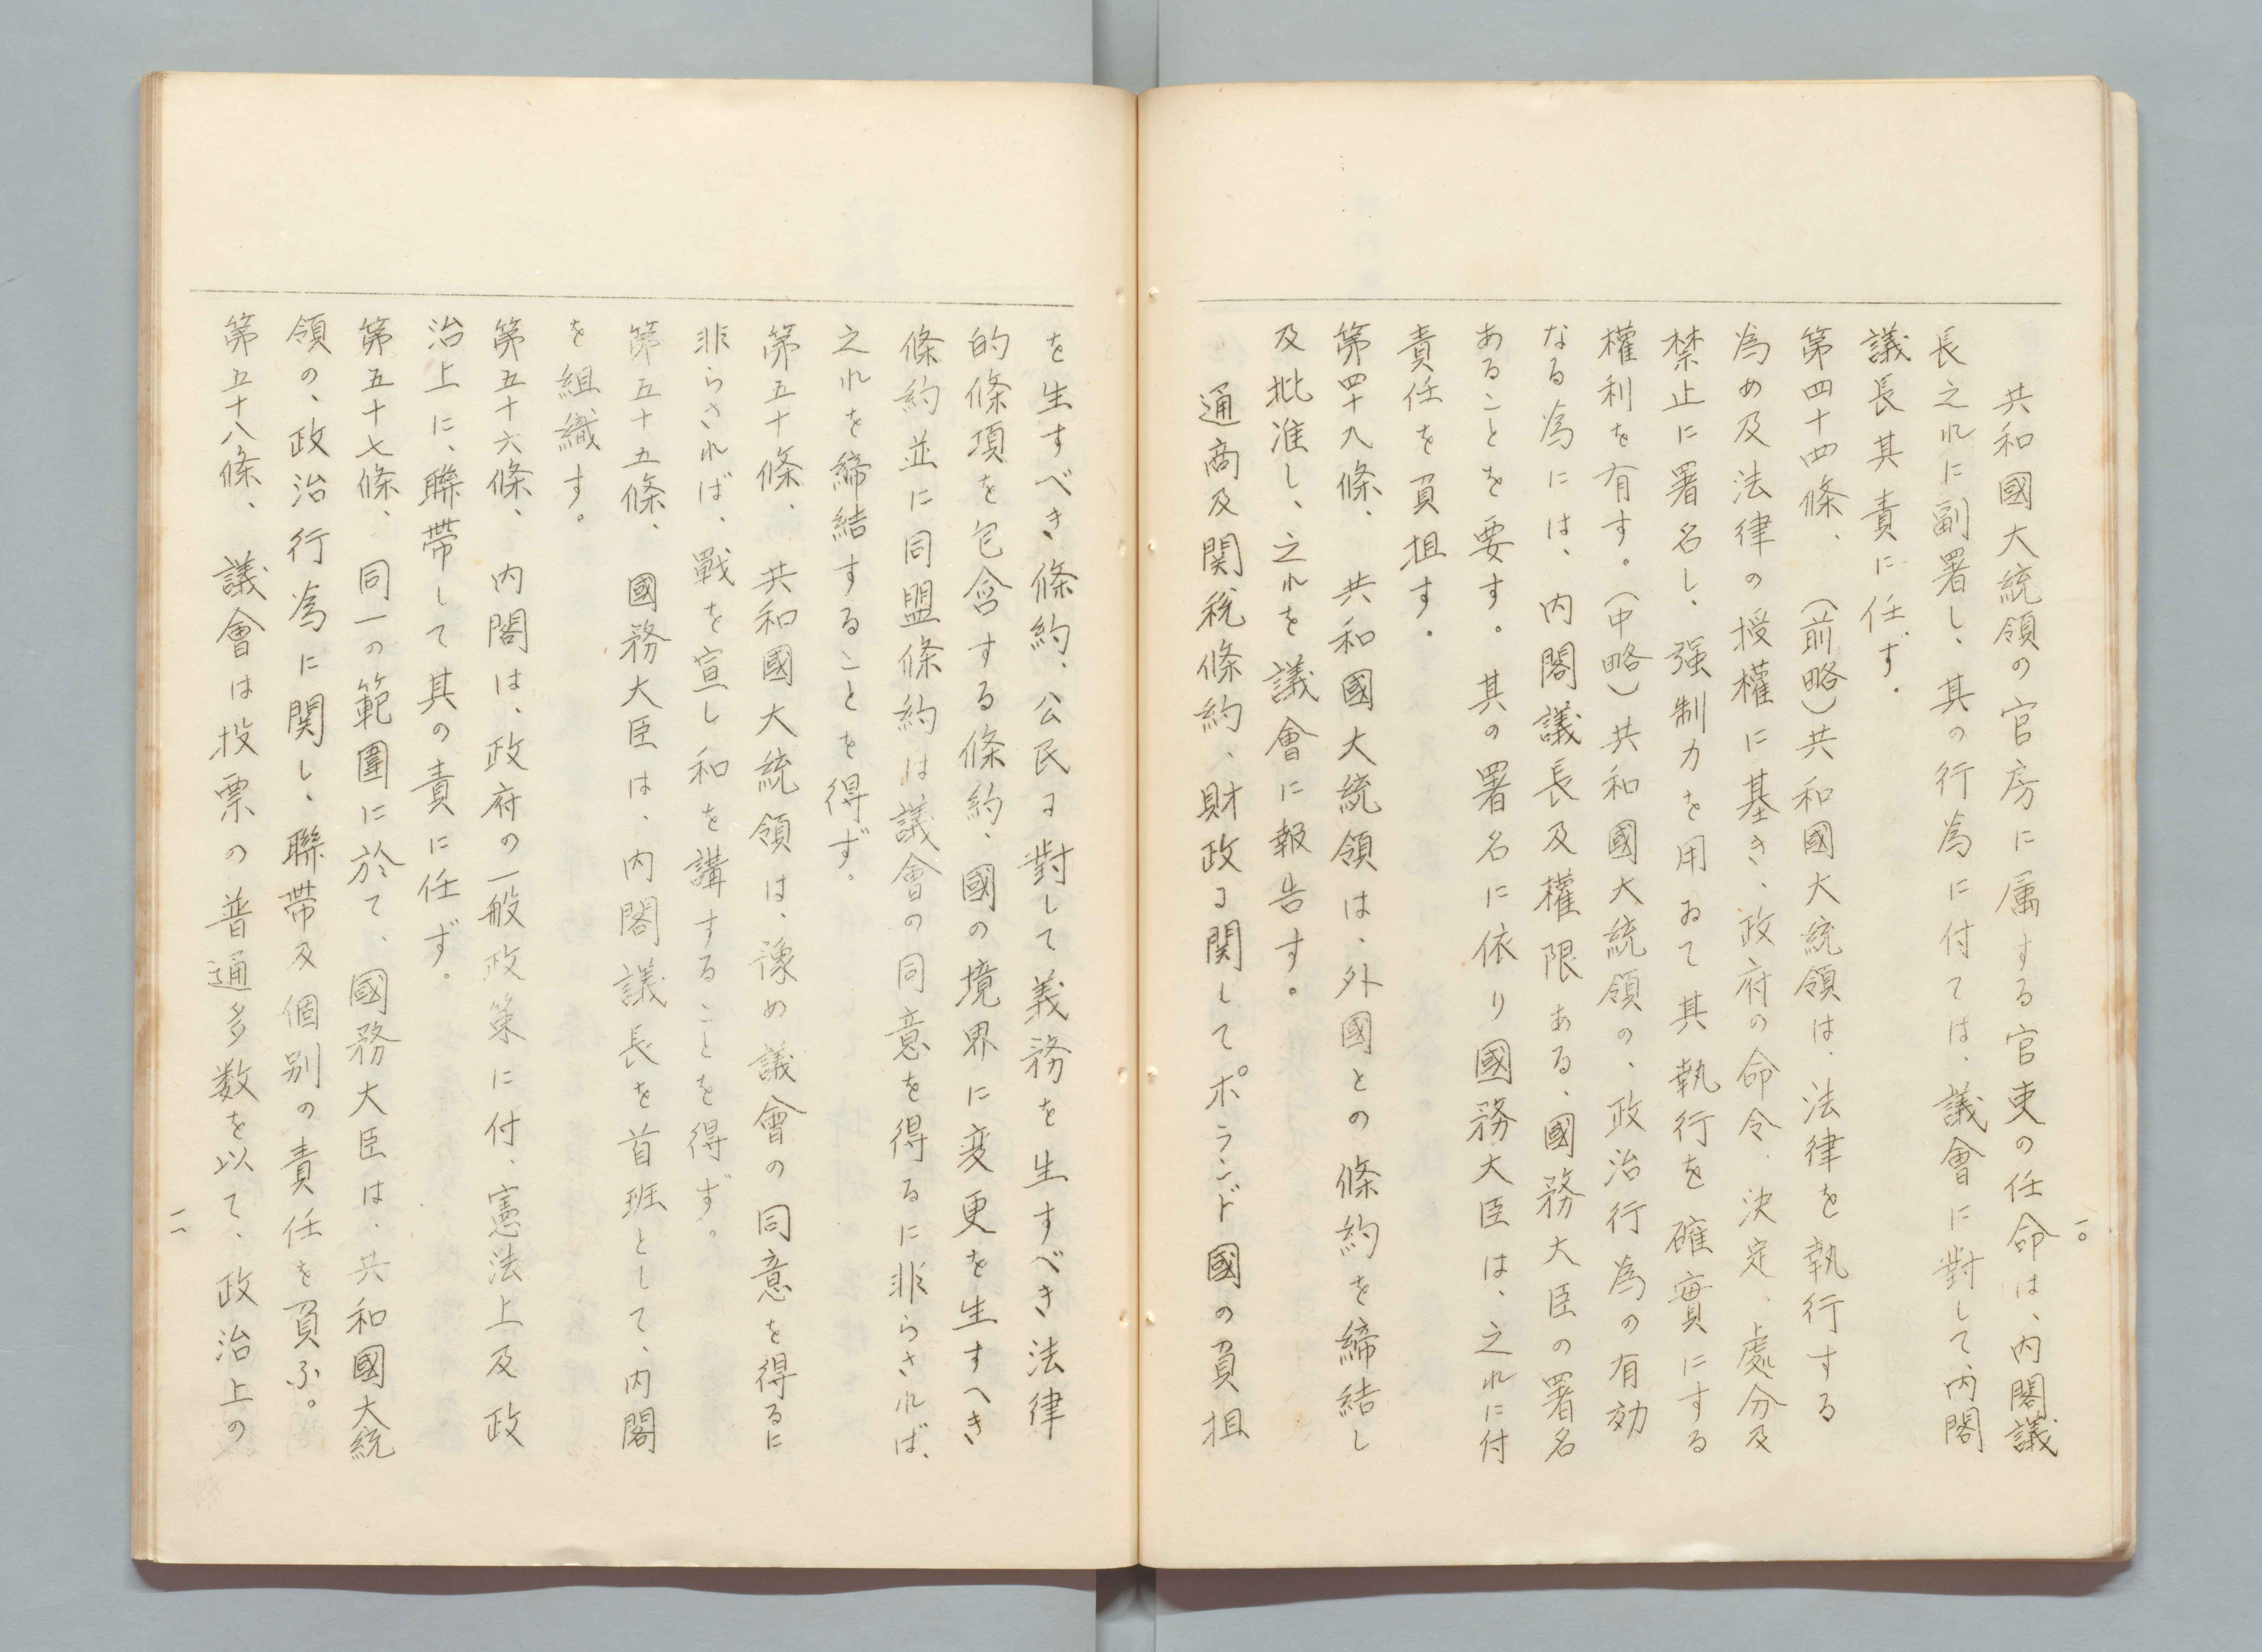 一〇
共和國大統領の官房に属する官吏の任命は、内閣議
長之れに副署し、其の行為に付ては、議會に對して、内閣
議長其責に任ず。
第四十四條、（前略）共和國大統領は、法律を執行する
為め及法律の授權に基き、政府の命令、決定、處分及
禁止に署名し、强制力を用ゐて其執行を確實にする
權利を有す。（中略）共和國大統領の、政治行為の有効
なる為には、内閣議長及權限ある、國務大臣の署名
あることを要す。其の署名に依り國務大臣は、之れに付
責任を負担す。
第四十九條、共和國大統領は、外國との條約を締結し
及批准し、之れを議會に報告す。
通商及関税條約、財政に関してポランド國の負担
を生すべき條約、公民に對して義務を生すべき法律
的條項を包含する條約、國の境界に変更を生すへき
條約並に同盟條約は議會の同意を得るに非らされば、
之れを締結することを得ず。
第五十條、共和國大統領は、豫め議會の同意を得るに
非らされば、戰を宣し和を講することを得ず。
第五十五條、國務大臣は、内閣議長を首班として、内閣
を組織す。
第五十六條、内閣は、政府の一般政策に付、憲法上及政
治上に、聯帶して其の責に任ず。
第五十七條、同一の範圍に於て、國務大臣は、共和國大統
領の、政治行為に関し、聯帶及個別の責任を負ふ。
第五十八條、議會は投票の普通多数を以て、政治上の
一一